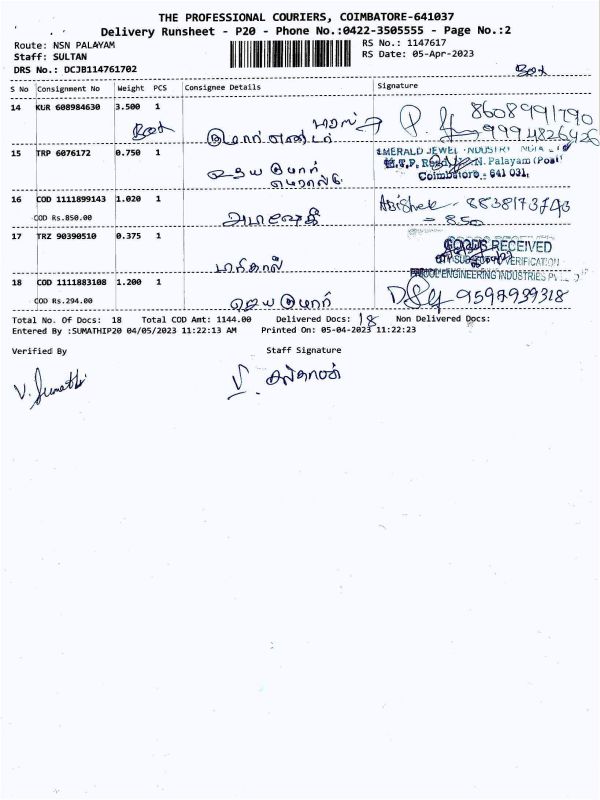 THE PROFESSIONAL COURIERS, COIMBATORE-641037
Delivery Runsheet - P20 - Phone No.:0422-3505555 - Page No.:2
Route: NSN PALAYAM
RS No.: 1147617
Staff: SULTAN
RS Date: 05-Apr-2023
DRS No.: DCJB114761702
Box
S No Consignment No Weight PCS Consignee Details Signature
14 KUR 608984630 3.500 1
Box
8608991790
9994826426
15 TRP 6076172 0.750 1
உதயகுமார்
EMERALD JEWEL INDUSTRY INDIA
N. Palayam (Post)
Coimbatore - 641 031.
16 COD 1111899143 1.020 1
Abishek - 8838173743
COD Rs.850.00
= 850
17 TRZ 90390510 0.375 1
GOODS RECEIVED
VERIFICATION
ENGINEERING INDUSTRIES
18 COD 1111883108 1.200 1
9597939318
COD Rs.294.00
ஜெயகுமார்
Total No. Of Docs: 18 Total COD Amt: 1144.00 Delivered Docs: 18 Non Delivered Docs:
Entered By :SUMATHIP20 04/05/2023 11:22:13 AM Printed On: 05-04-2023 11:22:23
Verified By Staff Signature
V. Sumathi